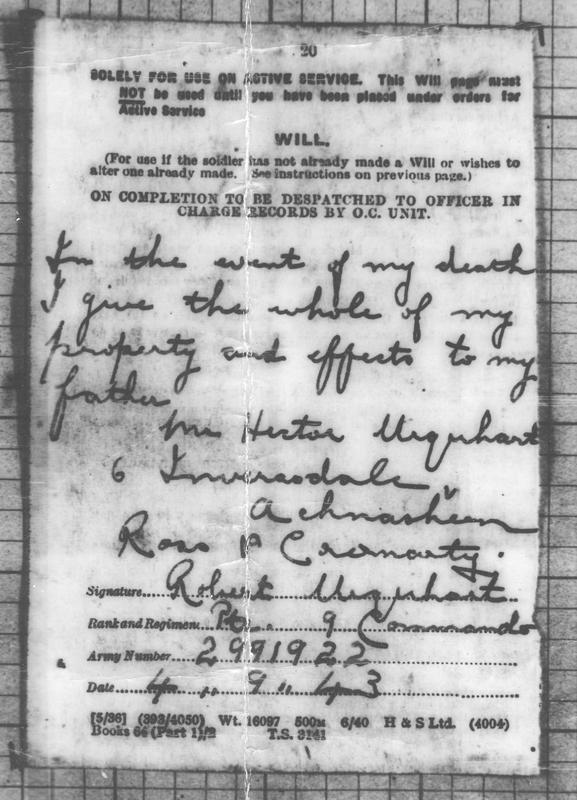 20
SOLELY FOR USE ON ACTIVE SERVICE. This Will page must
NOT be used until you have been placed under orders for
Active Service
WILL.
(For use if the soldier has not already made a Will or wishes to
alter one already made. See instructions on previous page.)
ON COMPLETION TO BE DESPATCHED TO OFFICER IN
CHARGE RECORDS BY O.C. UNIT.
In the event of my death
I give the whole of my
property and effects to my
father
Mr Hector Urquhart
6 Inverasdale
Achnasheen
Ross & Cromarty.
Signature....Robert Urquhart
Rank and Regiment...Pte. 9 Commando
Army Number....2991922
Date.... 9
[5/36] (393/4050) Wt. 16097 500M 6/40 H & S Ltd. (4004)
Books 66 (Part 1)/2 T.S. 3141